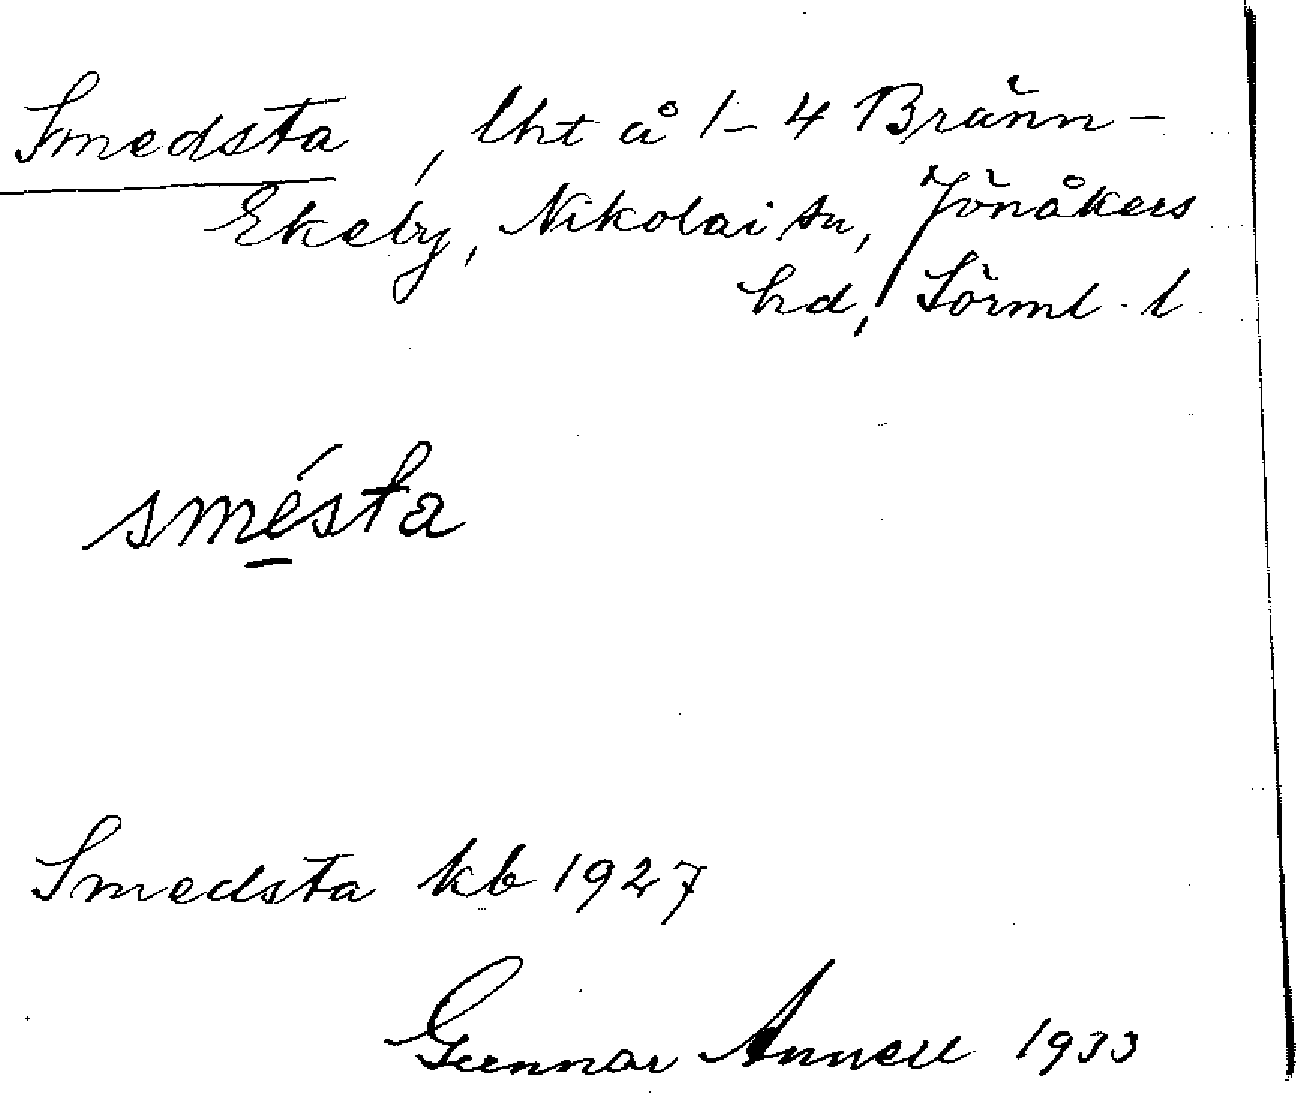 Smedsta, lht å 1-4 Bränn-
Ekeby, Nikolai sn, Jönåkers
hd, Sörml. l
smésta
Smedsta kb 1927
Gunnar Annell 1933